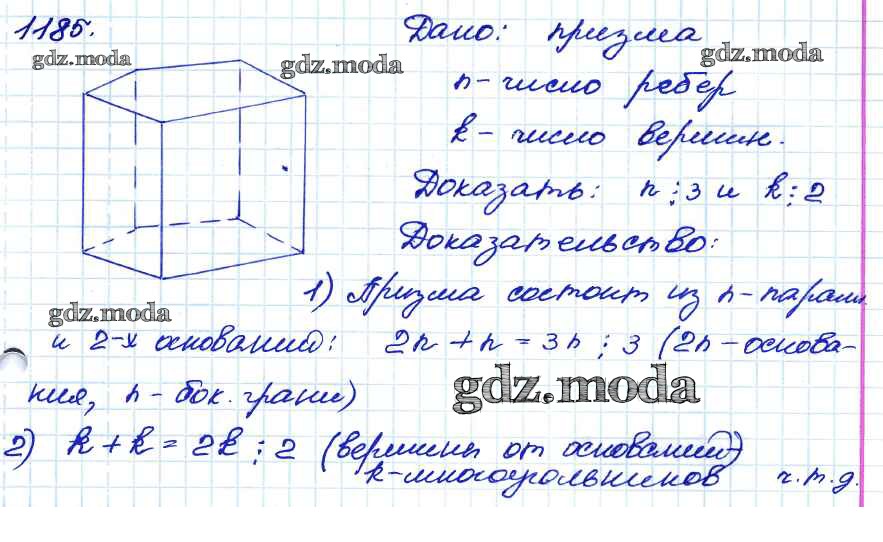 1185.
gdz.moda
gdz.moda
Дано: призма
gdz.moda
n - число ребер
k - число вершин.
Доказать: n ⋮ 3 и k ⋮ 2
Доказательство:
1) Призма состоит из n-паралл.
gdz.moda
и 2-х оснований: 2n + n = 3n ⋮ 3 (2n - основа-
ния, n - бок. грани)
gdz.moda
2) k + k = 2k ⋮ 2 (вершины от оснований)
k-многоугольников ч.т.д.